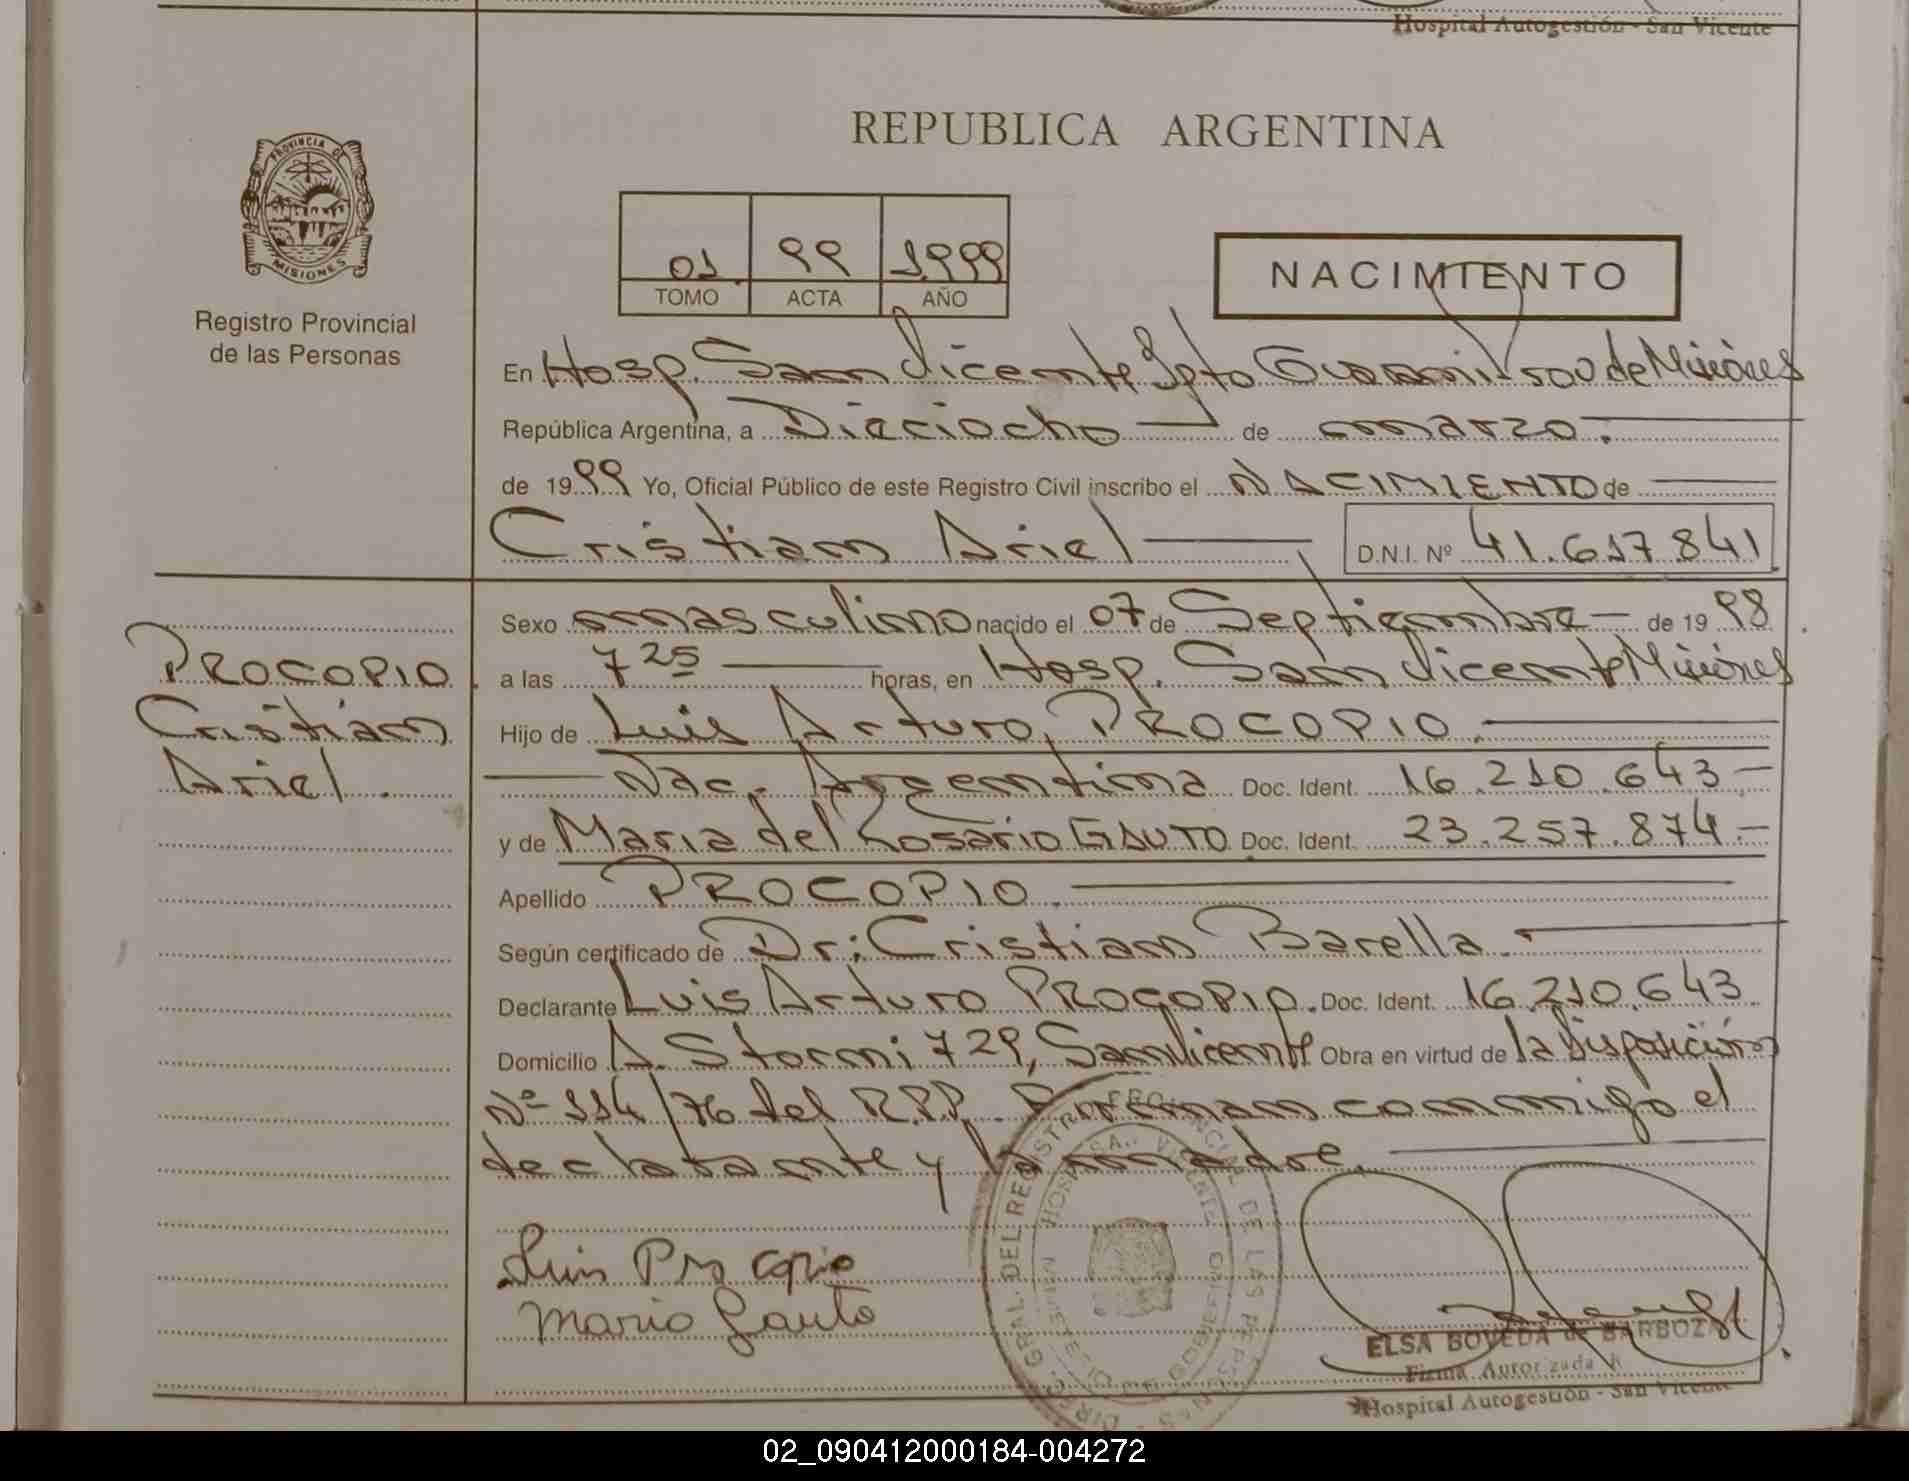 Hospital Autogestión - San Vicente
REPUBLICA ARGENTINA
PROVINCIA DE
MISIONES
Registro Provincial
de las Personas
01 99 1999
TOMO ACTA AÑO
NACIMIENTO
En Hosp. San Vicente Dpto Guaraní de Misiones
República Argentina, a Dieciocho de marzo.
de 1999 Yo, Oficial Público de este Registro Civil inscribo el NACIMIENTO de
Cristian Ariel D.N.I. Nº 41.617.841
PROCOPIO
Cristian
Ariel.
Sexo masculino nacido el 07 de Septiembre de 1998
a las 7 25 horas, en Hosp. San Vicente Misiones
Hijo de Luis Arturo PROCOPIO.
Nac. Argentina Doc. Ident. 16.210.643
y de Maria del Rosario GAUTO Doc. Ident. 23.257.874
Apellido PROCOPIO.
Según certificado de Dr: Cristian Barella.
Declarante Luis Arturo PROCOPIO. Doc. Ident. 16.210.643
Domicilio A. Storni 729, San Vicente Obra en virtud de la Disposición
Nº 114/76 del R.P.P. Firman conmigo el
declarante y la madre.
Luis Procopio
Maria Gauto
ELSA BOVEDA de BARBOZA
Firma Autorizada
Hospital Autogestión - San Vicente
02_090412000184-004272